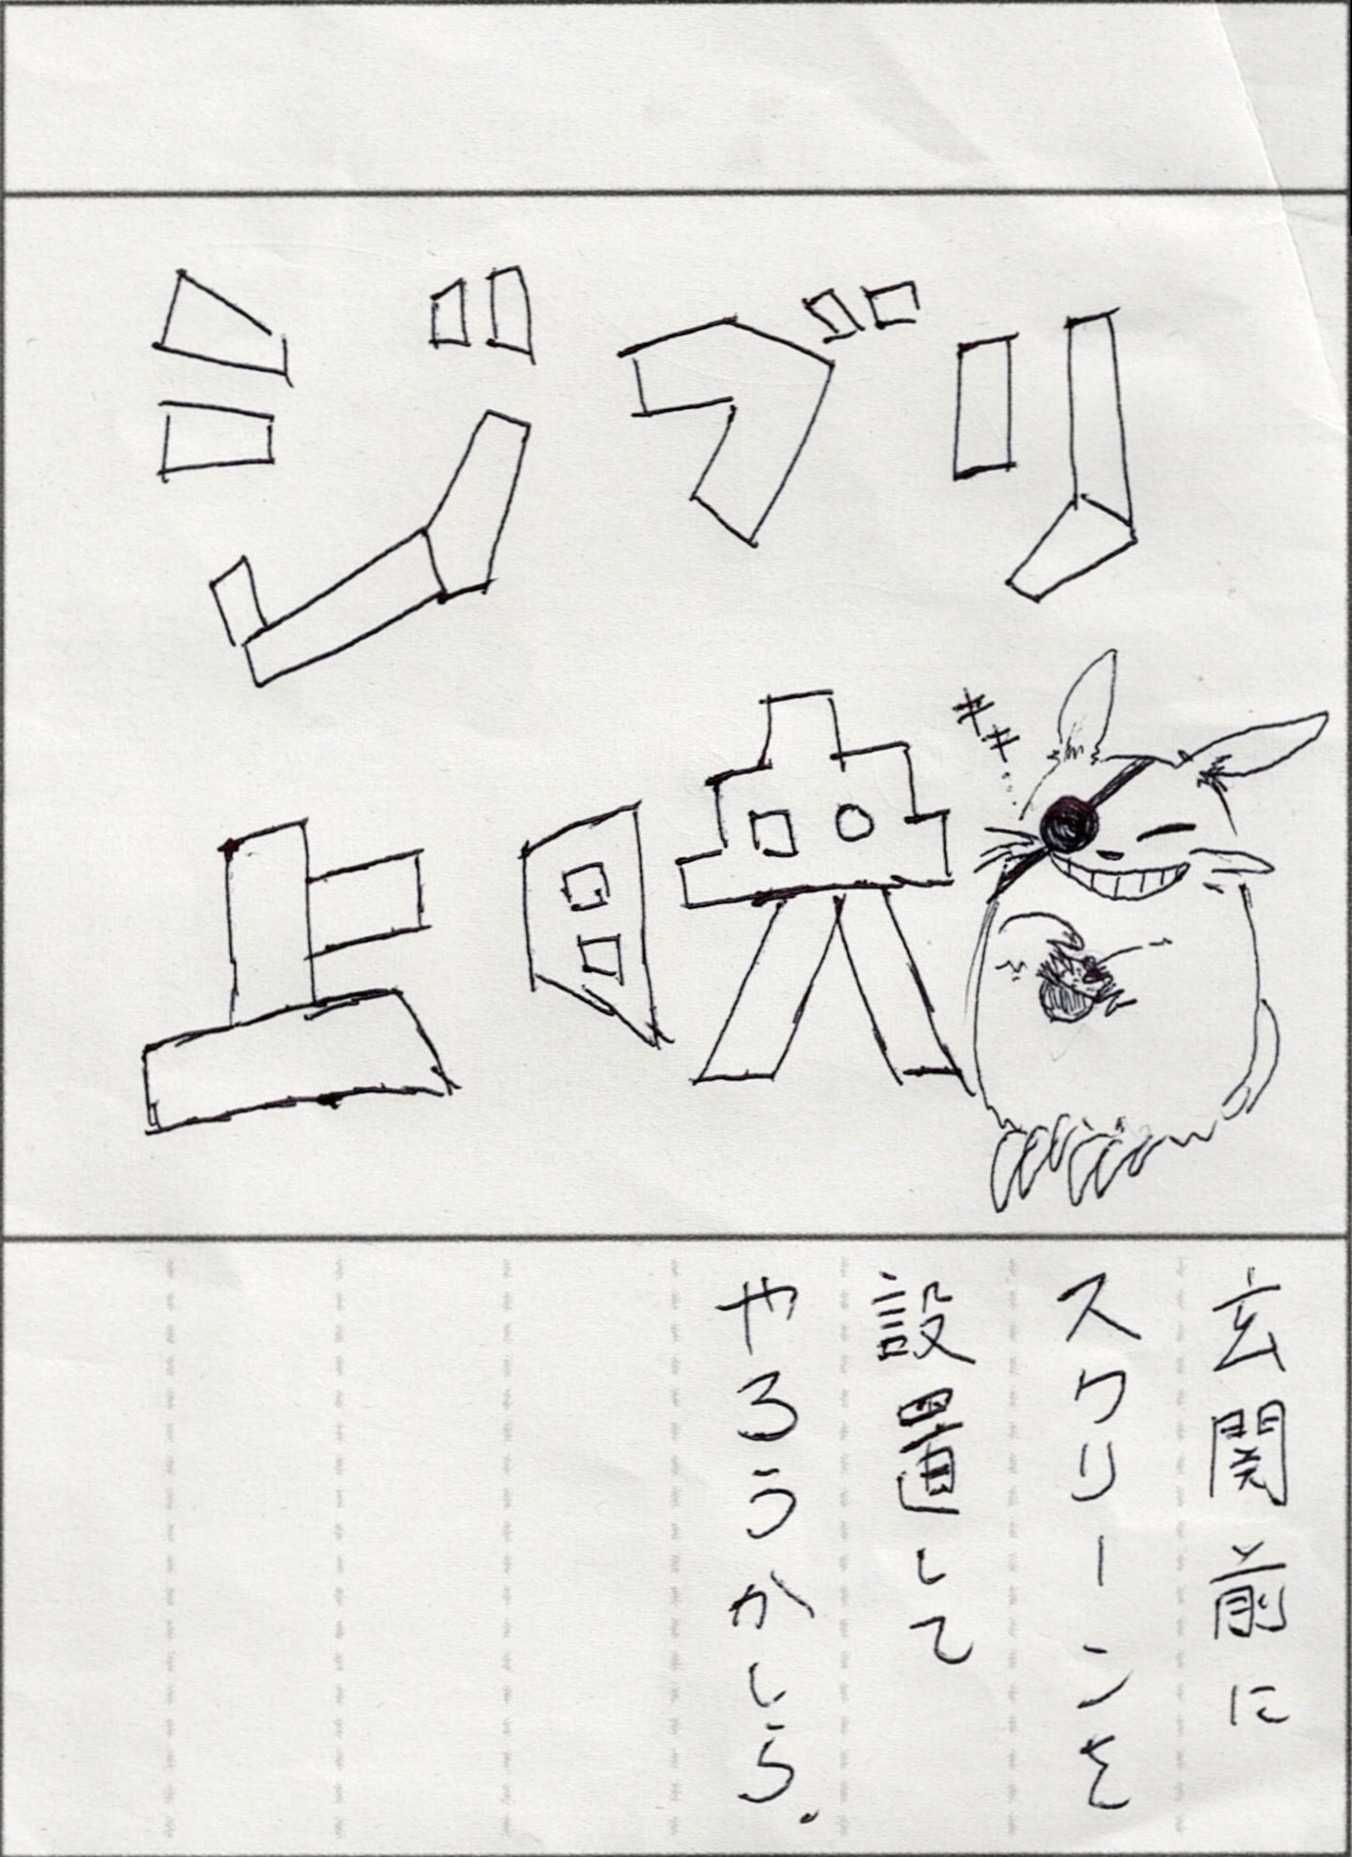 ジブリ
上映
キキ…
玄関前に
スクリーンを
設置して
やろうかしら.